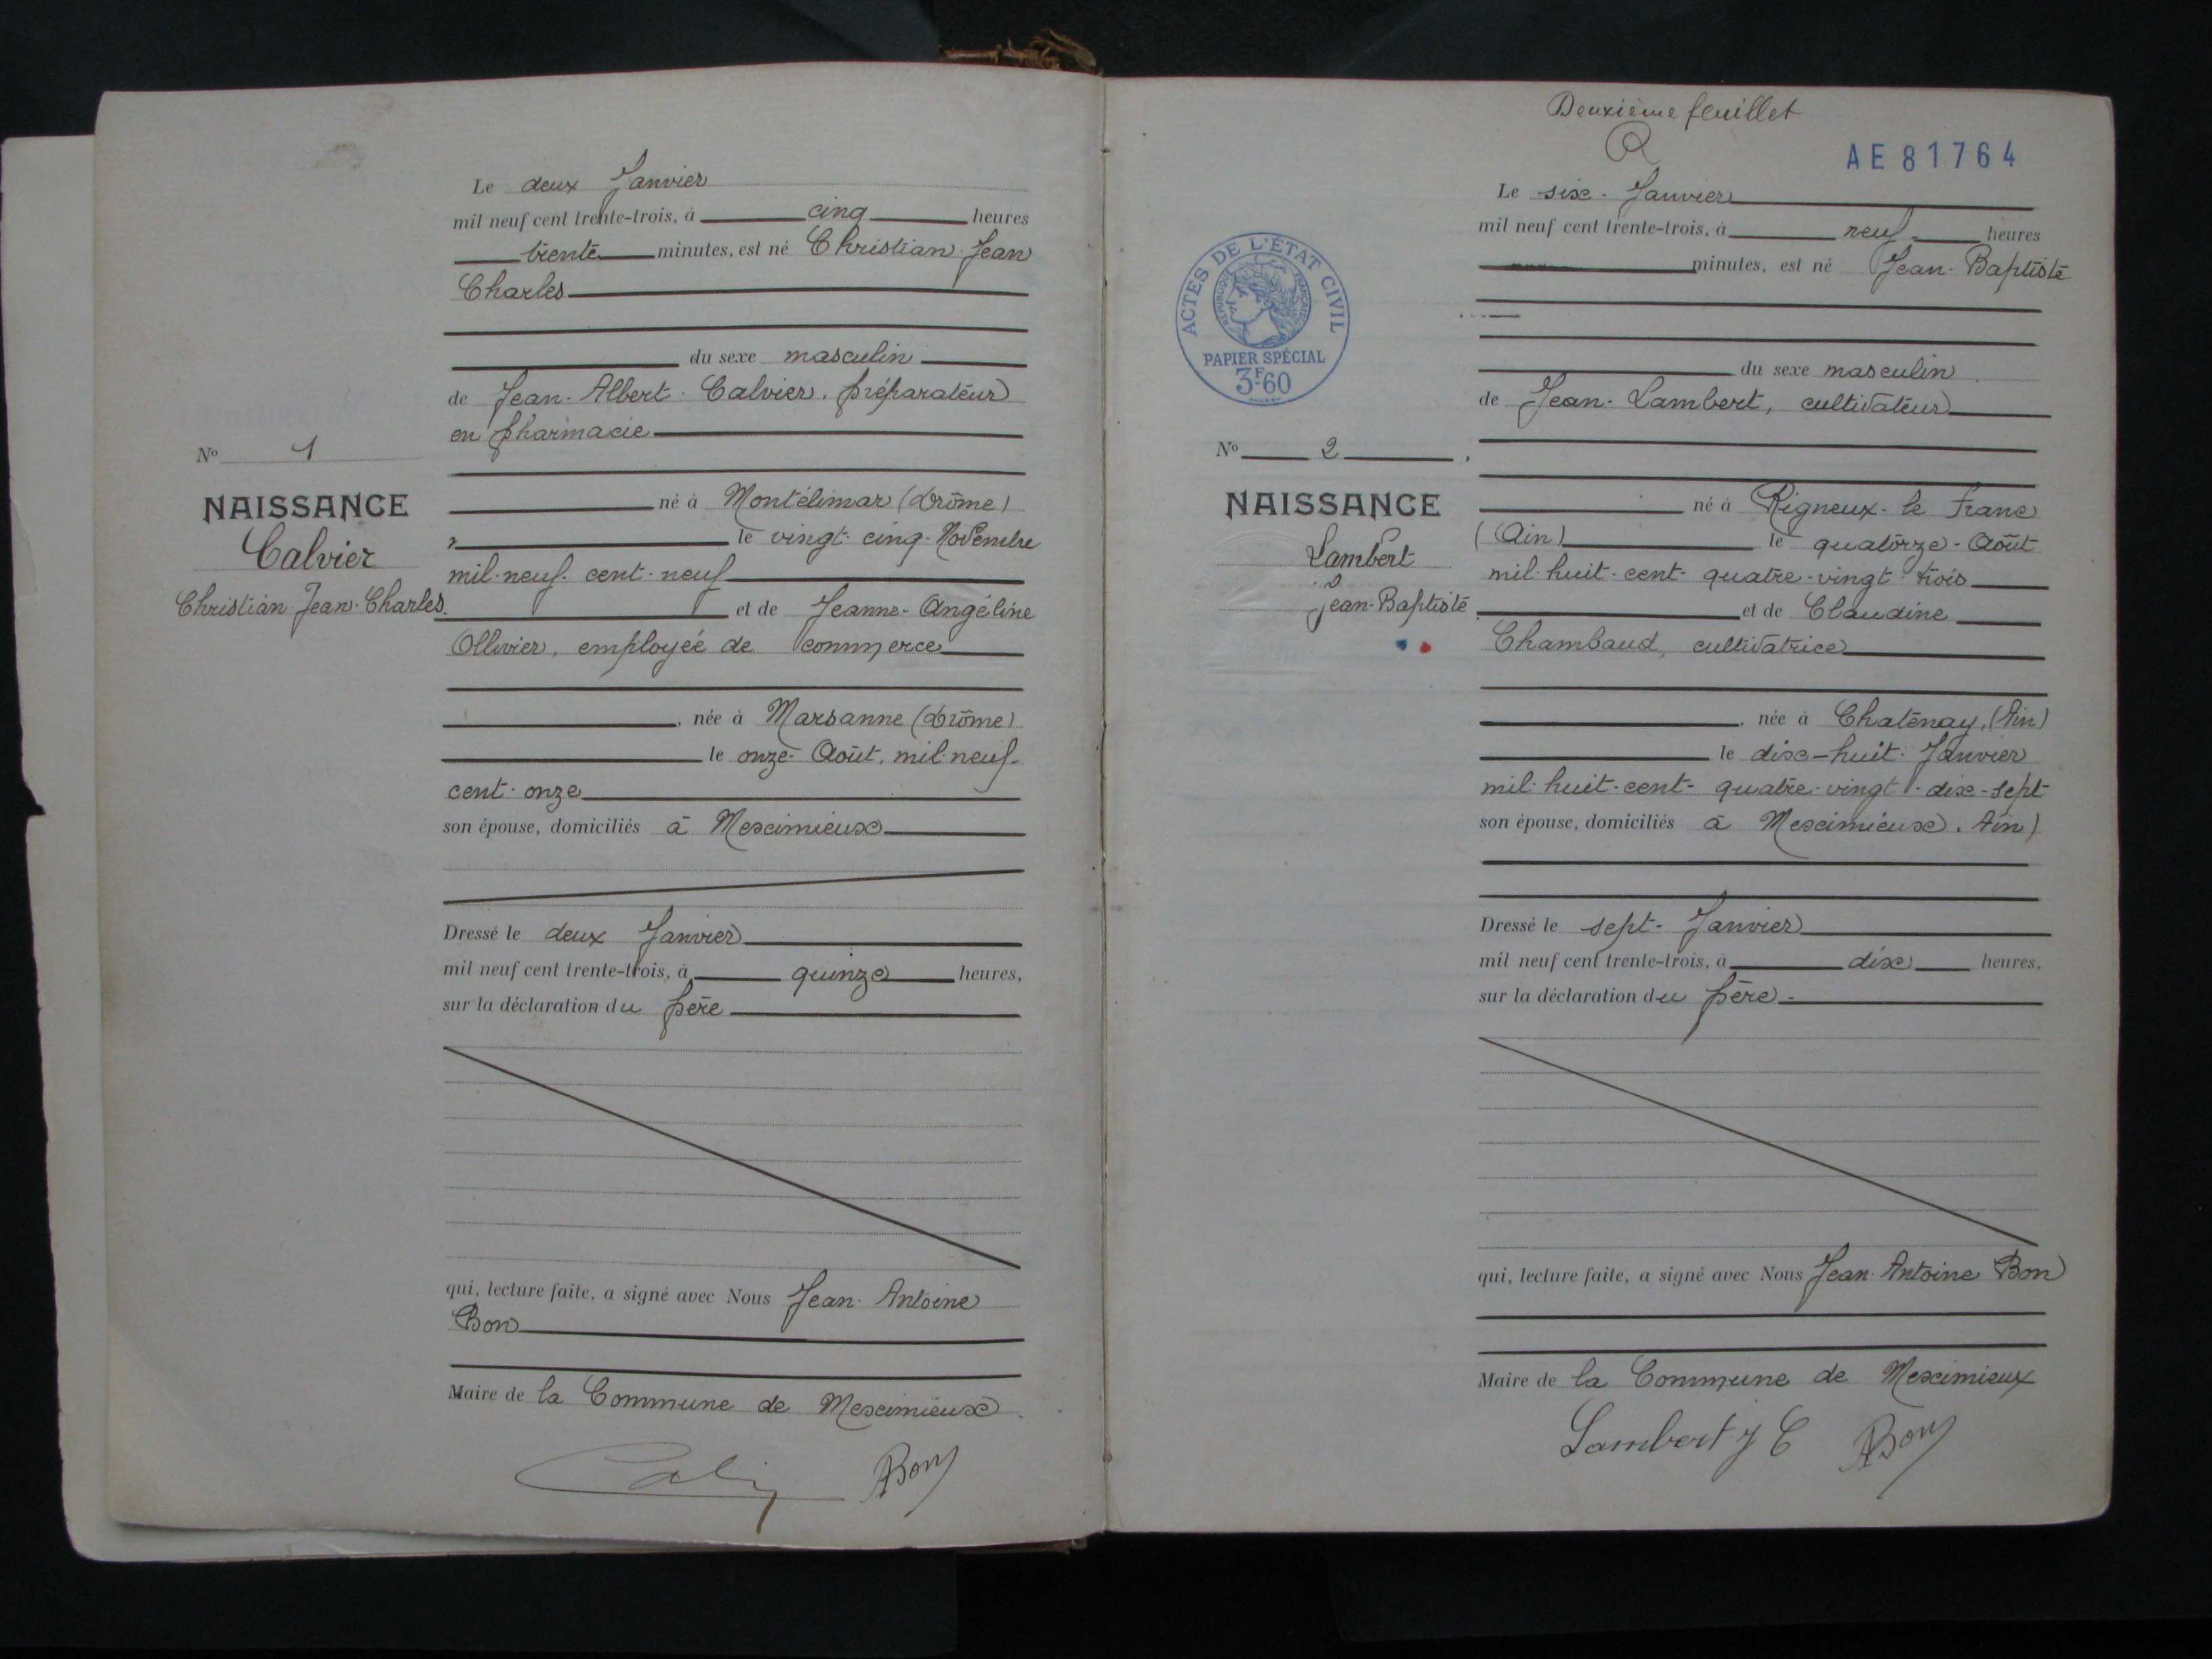 Le deux Janvier
mil neuf cent trente-trois, à cinq heures
trente minutes, est né Christian-Jean
Charles
du sexe masculin
de Jean-Albert Calvier, préparateur
en pharmacie
né à Montélimar (Drôme)
le vingt-cinq Novembre
mil-neuf-cent-neuf
et de Jeanne-Angéline
Ollivier, employée de commerce
, née à Marsanne (Drôme)
le onze Août, mil-neuf-
cent-onze
son épouse, domiciliés à Meximieux
Dressé le deux Janvier
mil neuf cent trente-trois, à quinze heures,
sur la déclaration du père
qui, lecture faite, a signé avec Nous Jean-Antoine
Bon
Maire de la Commune de Meximieux
Bon
No 1
NAISSANCE
Calvier
Christian-Jean-Charles
Deuxième feuillet
AE 81764
Le six-Janvier
mil neuf cent trente-trois, à neuf heures
minutes, est né Jean-Baptiste
du sexe masculin
de Jean-Lambert, cultivateur
né à Rigneux-le Franc
(Ain) le quatorze-Août
mil-huit-cent-quatre-vingt-trois
et de Claudine
Chambaud, cultivatrice
, née à Chatenay, (Ain)
le dix-huit Janvier
mil-huit-cent-quatre-vingt-dix-sept
son épouse, domiciliés à Meximieux. Ain)
Dressé le sept-Janvier
mil neuf cent trente-trois, à dix heures,
sur la déclaration du père-
qui, lecture faite, a signé avec Nous Jean-Antoine Bon
Maire de la Commune de Meximieux
Lambert J C Bon
ACTES DE L'ÉTAT CIVIL
RÉPUBLIQUE FRANÇAISE
PAPIER SPÉCIAL
3F60
No 2
NAISSANCE
Lambert
Jean-Baptiste